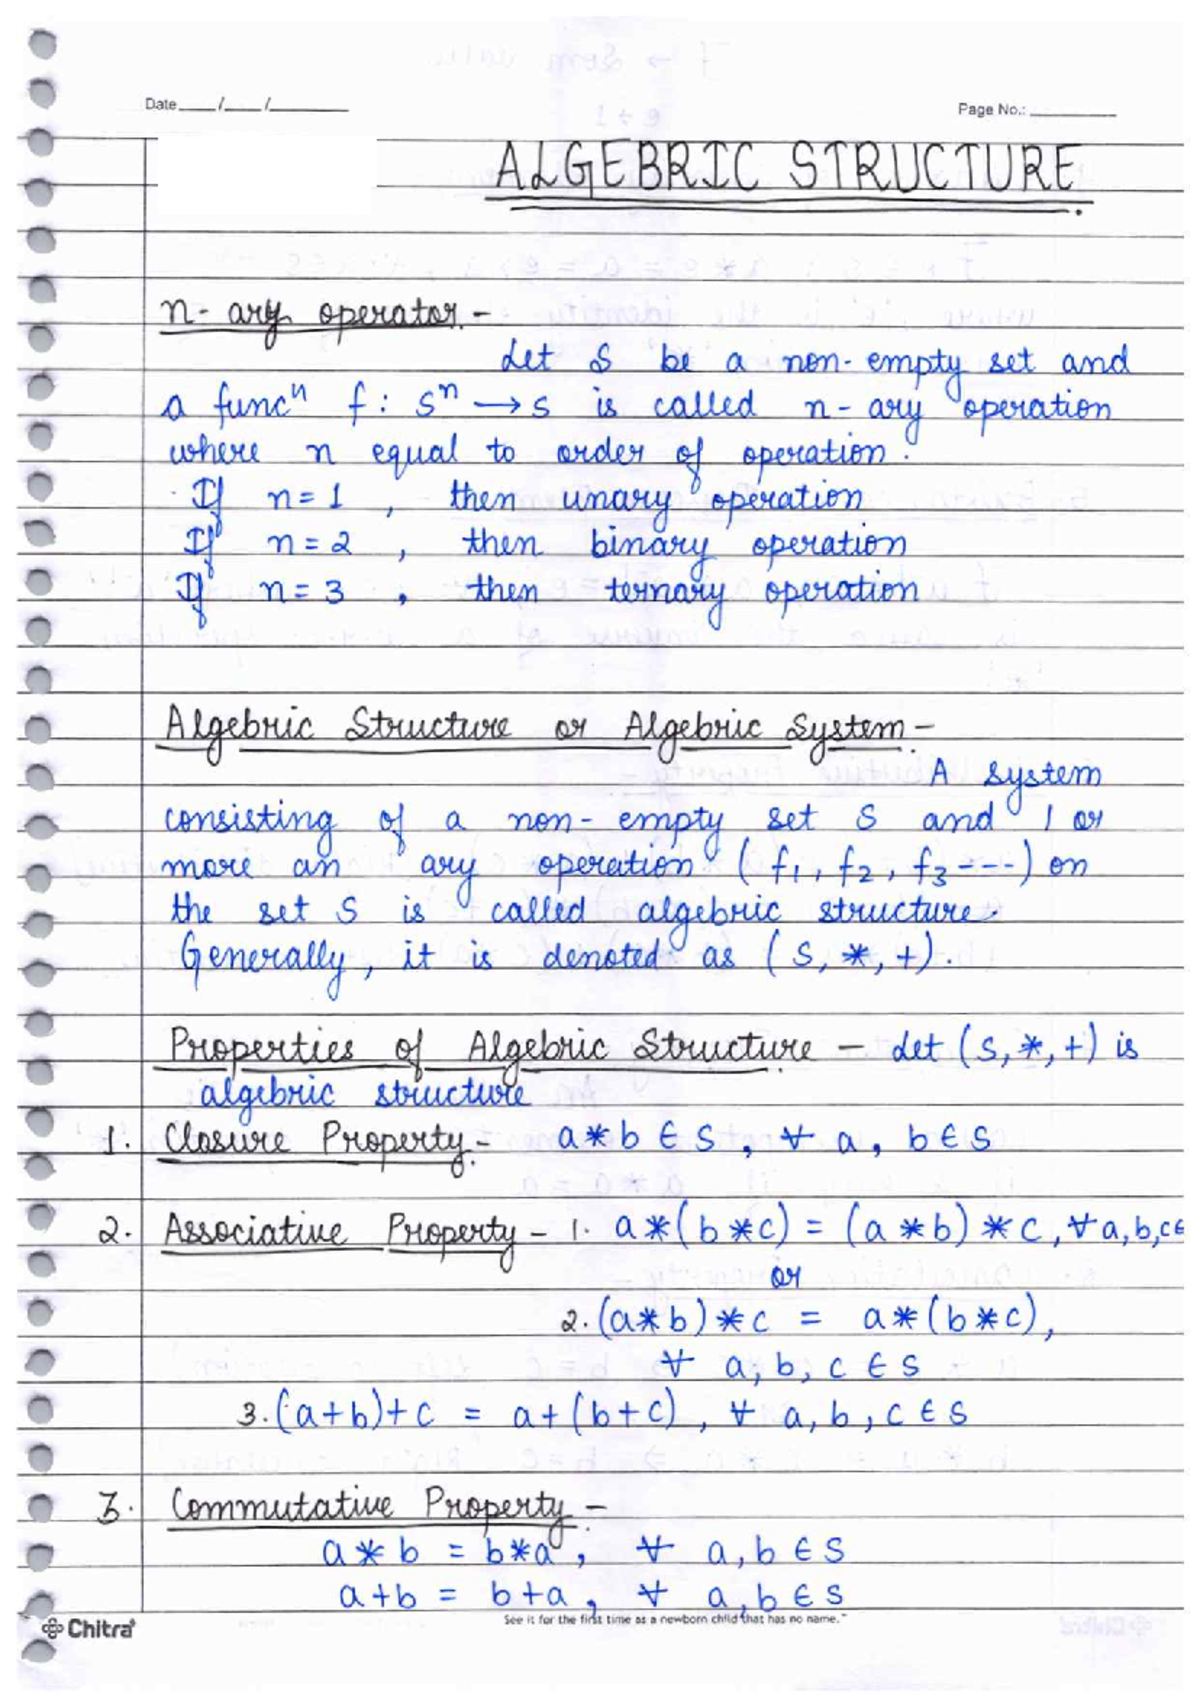 Date ___/___/______
Page No.: ________
ALGEBRIC STRUCTURE
n-ary operator.-
Let S be a non-empty set and
a funcⁿ f: sⁿ → s is called n-ary operation
where n equal to order of operation.
If n=1, then unary operation
If n=2, then binary operation
If n=3, then ternary operation
Algebric Structure or Algebric System -
A system
consisting of a non-empty set S and 1 or
more an ary operation (f₁, f₂, f₃ ---) on
the set S is called algebric structure.
Generally, it is denoted as (S, *, +).
Properties of Algebric Structure - Let (S, *, +) is
algebric structure
1. Closure Property.- a*b ∈ S, ∀ a, b ∈ S
2. Associative Property - 1. a*(b*c) = (a*b)*c, ∀ a,b,c ∈
or
2. (a*b)*c = a*(b*c),
∀ a, b, c ∈ S
3. (a+b)+c = a+(b+c), ∀ a, b, c ∈ S
3. Commutative Property -
a*b = b*a, ∀ a, b ∈ S
a+b = b+a, ∀ a, b ∈ S
See it for the first time as a newborn child that has no name."
Chitra